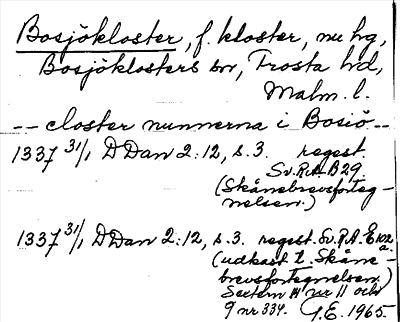 Bosjökloster, f. kloster, nu hg,
Bosjöklosters sn, Frosta hd,
Malm. l.
-- closter nunnerna i Bosiö --
1337 31/1 DDan 2:12, s. 3. regest.
Sv.R.A. B 29.
(Skånebrevsforteg-
nelsen.)
1337 31/1, DDan 2:12, s. 3. regest. Sv.R.A. E 102
a.
(udkast t. Skåne-
brevsfortegnelsen.)
Sextern H nr 11 och
9 nr 334. G.E. 1965.